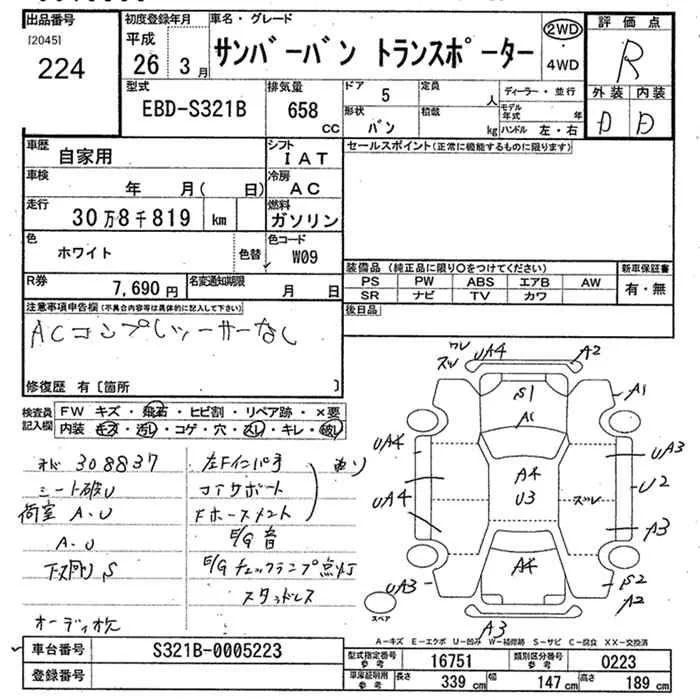 出品番号
[2045]
224
初度登録年月
平成
26 3月
車名・グレード
サンバーバン トランスポーター
2WD
・
4WD
評価点
R
外装 内装
D D
型式
EBD-S321B
排気量
658
CC
ドア
5
定員
人
形状
バン
積載
kg
ディーラー・並行
モデル年式 年
ハンドル 左・右
車歴
自家用
シフト
IAT
車検
年 月( 日)
冷房
AC
走行
30万8千819 km
燃料
ガソリン
色
ホワイト
色替
色コード
W09
R券
7,690円
名変通知期限
月 日
セールスポイント(正常に機能するものに限ります)
装備品 (純正品に限り○をつけてください)
PS PW ABS エアB AW
SR ナビ TV カワ
新車保証書
有・無
後日品
注意事項申告欄(不具合内容等は具体的に記入して下さい)
ACコンプレッサーなし
修復歴 有〔箇所 〕
検査員
記入欄
FW キズ・飛石・ヒビ割・リペア跡・×要
内装 キズ・汚レ・コゲ・穴・スレ・キレ・破レ
メド 308837
シート破レ
荷室 A.U
A.U
下廻り S
オーディオ欠
左Fインパネ
コアサポート
Fホースメント
E/G音
E/Gチェックランプ点灯
スタッドレス
ワレ
ズレ
UA4
A2
S1
A1
A1
UA4
UA4
A4
U3
ズレ
UA3
U2
A3
UA3
A4
S2
A2
A3
スペア
A-キズ E-エクボ U-凹み W-補修跡 S-サビ C-腐食 XX-交換済
車台番号
S321B-0005223
登録番号
型式指定番号
参考
16751
類別区分番号
参考
0223
車庫証明用
参考
長さ
339 cm
幅
147 cm
高さ
189 cm